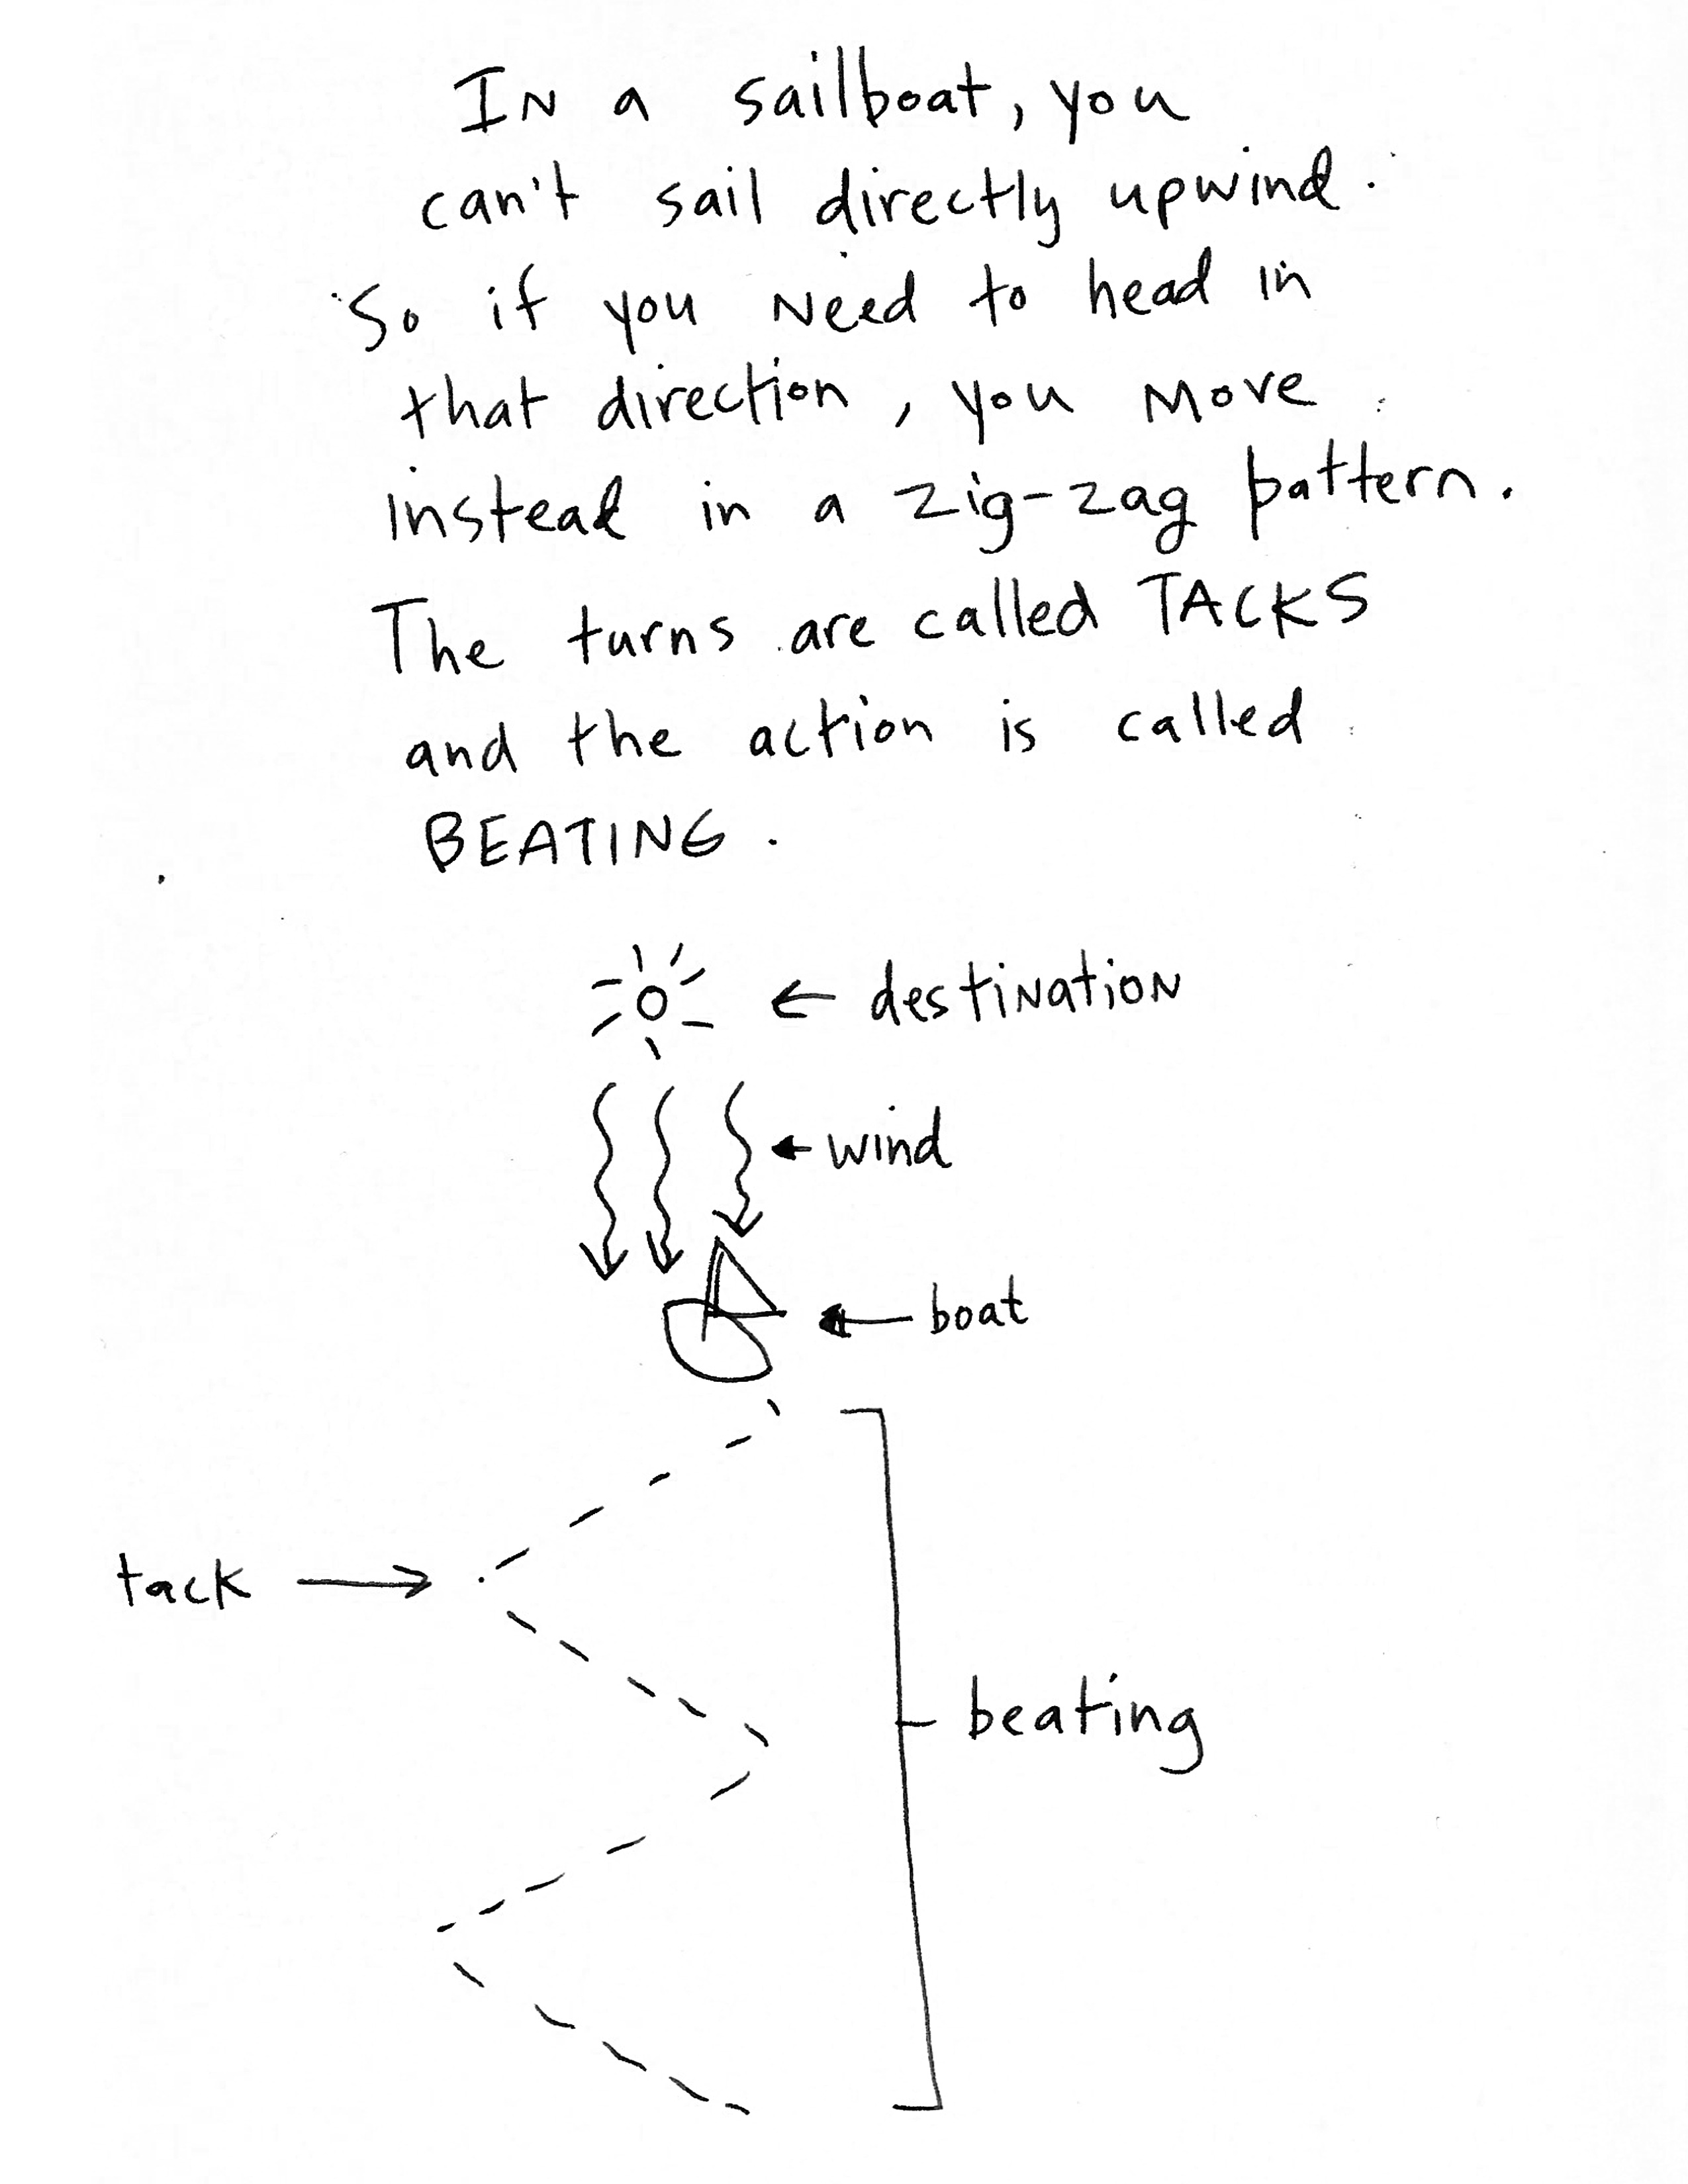 IN a sailboat, you
can't sail directly upwind.
So if you Need to head in
that direction, you Move
instead in a zig-zag pattern.
The turns are called TACKS
and the action is called
BEATING.
← destiNatioN
← wind
← boat
tack →
beating